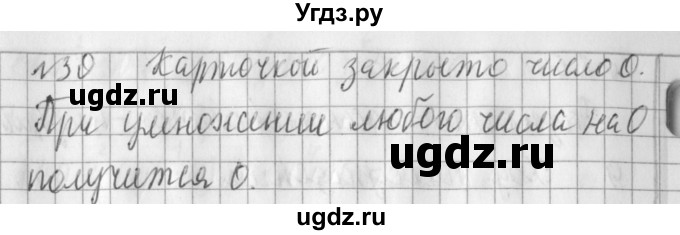 Угдз.ру
№30 Карточкой закрыто число 0.
ugdz.ru
ugdz.ru
При умножении любого числа на 0
ugdz.ru
получится 0.
ugdz.ru
ugdz.ru